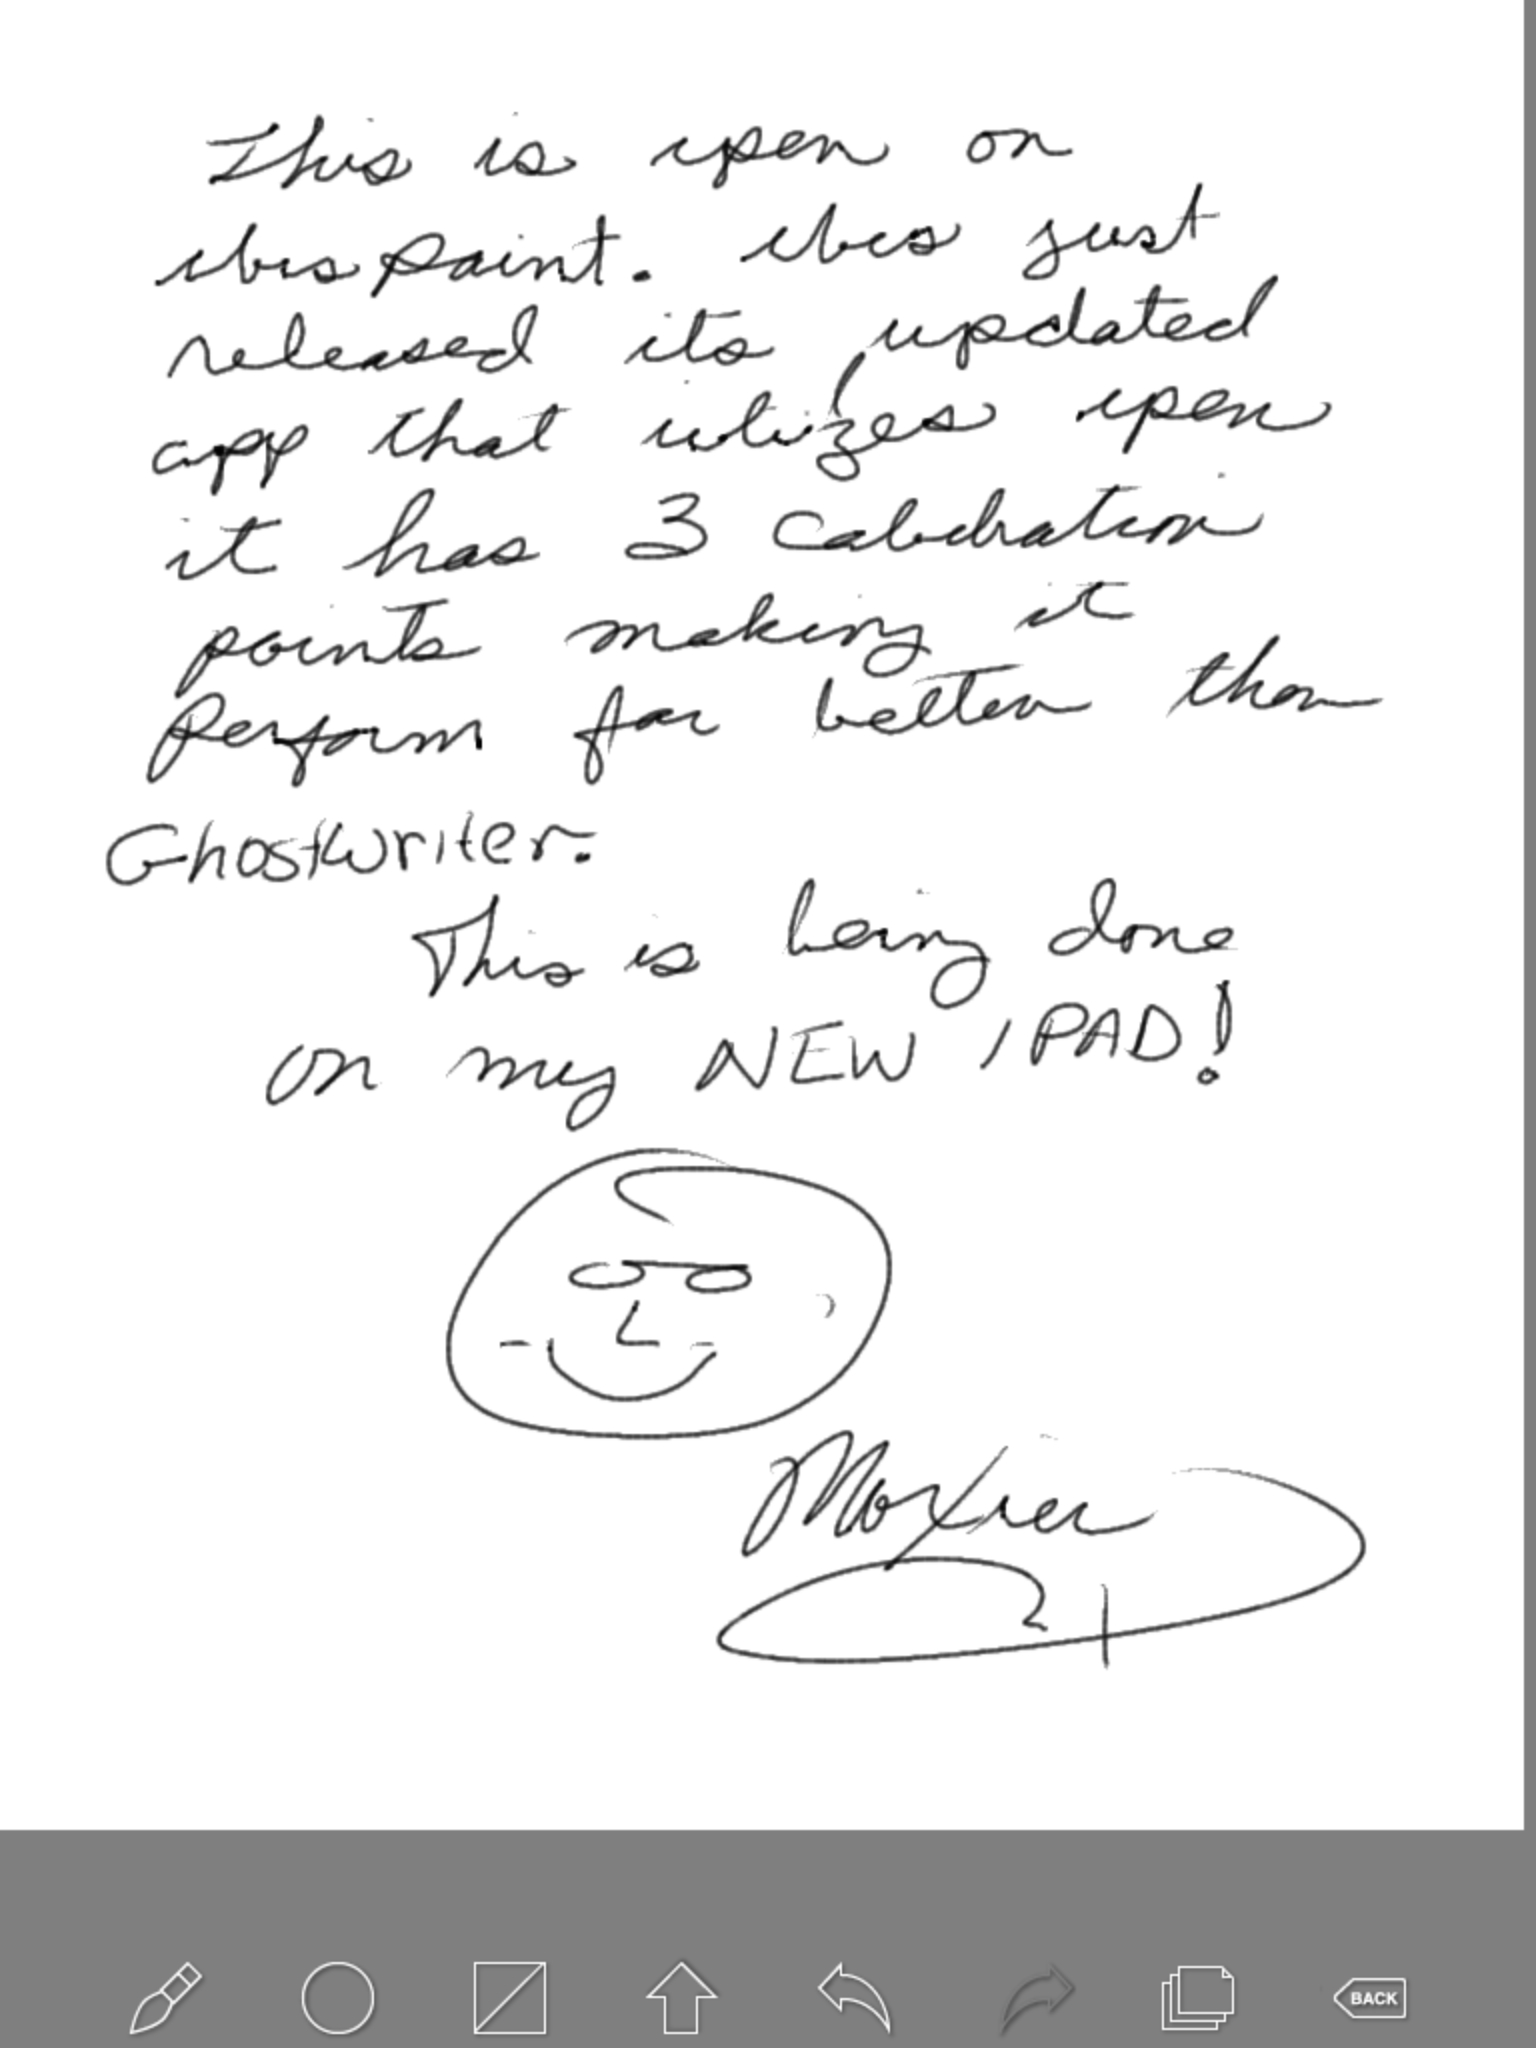 This is ipen on
ibis Paint. ibis just
released its updated
app that utilizes ipen
it has 3 Calibration
points making it
Perform far better than
Ghostwriter.
This is being done
on my NEW IPAD!
Moxier
BACK